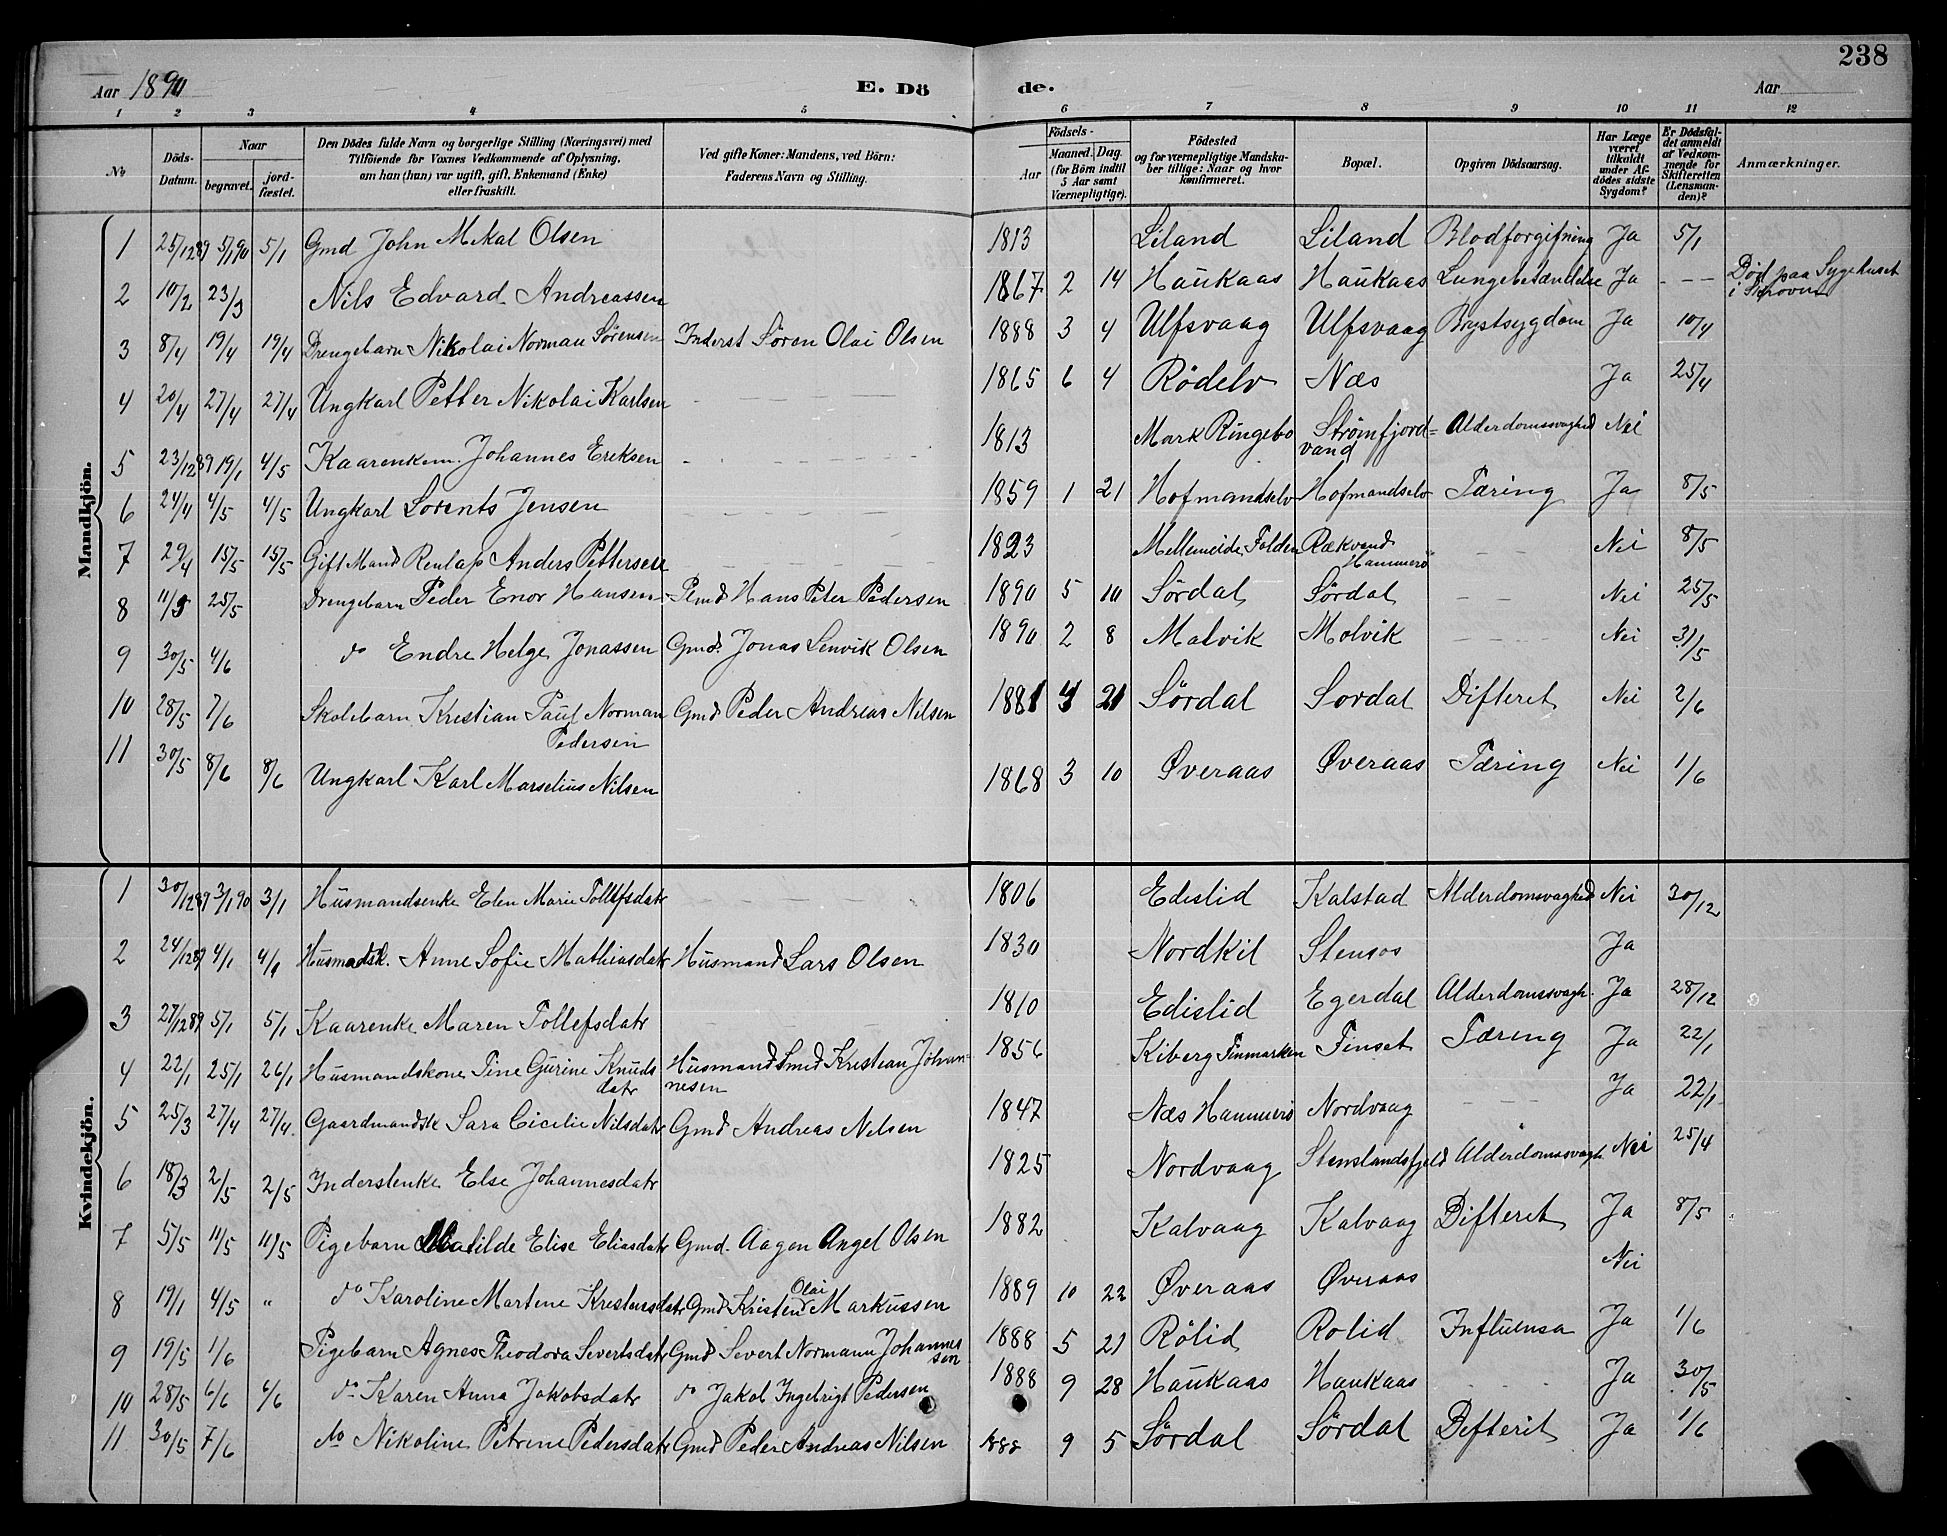 238
Aar 1890 E. Dö de. Aar
1 2 3 4 5 6 7 8 9 10 11 12
No
Döds-Datum.
Naar
begravet.
jord-fæstet.
Den Dödes fulde Navn og borgerlige Stilling (Næringsvei) med
Tilföiende for Voxnes Vedkommende af Oplysning,
om han (hun) var ugift, gift, Enkemand (Enke)
eller fraskilt.
Ved gifte Koner: Mandens, ved Börn:
Faderens Navn og Stilling.
Födsels-
Aar
Maaned. Dag.
(for Börn indtil
5 Aar samt
Værnepligtige).
Födested
og for værnepligtige Mandska-
ber tillige: Naar og hvor
konfirmeret.
Bopæl.
Opgiven Dödsaarsag.
Har Læge
været
tilkaldt
under Af-
dödes sidste
Sygdom?
Er Dödsfal-
det anmeldt
af Vedkom-
mende for
Skifteretten
(Lensman-
den)?
Anmærkninger.
Mandkjön.
1 25/12 89 5/1 90 5/1 Gmd John Mikal Olsen 1813 Liland Liland Blodforgiftning Ja 5/1
2 10/2 23/3 Nils Edvard Andreassen 1867 2 14 Haukaas Haukaas Lungebetændelse Ja - - - Död paa Sygehuset
i
3 8/4 19/4 19/4 Drengebarn Nikolai Norman Sörensen Inderst Sören Olai Olsen 1888 3 4 Ulfsvaag Ulfsvaag Brystsygdom Ja 10/4
4 20/4 27/4 27/4 Ungkarl Petter Nikolai Karlsen 1865 6 4 Rödelv Næs Ja 25/4
5 23/12 89 19/1 4/5 Kaarenkem. Johannes Eriksen 1813 Mark Ringebo Strömfjord=
vand Alderdomssvaghed Nei
6 24/4 4/5 4/5 Ungkarl Lorents Jensen 1859 1 21 Hofmandselv Hofmandselv Tæring Ja 8/5
7 29/4 15/5 15/5 Gift Mand Renlap Anders Pettersen 1823 Mellemeide Folden Rækvand
Hammerö - - Nei 8/5
8 11/5 25/5 Drengebarn Peder Enor Hansen Hans Peter Pedersen 1890 5 10 Sördal Sördal - - Nei 25/5
9 30/5 4/6 do Endre Helge Jonassen Gmd. Jonas Lenvik Olsen 1890 2 8 Malvik Molvik Nei 31/5
10 28/5 7/6 Skolebarn Kristian Paul Norman
Pedersen Gmd Peder Andreas Nilsen 1881 4 21 Sördal Sordal Difteret Nei 2/6
11 30/5 8/6 8/6 Ungkarl Karl Marselius Nilsen 1868 3 10 Øveraas Øveraas Tæring Nei 1/6
Kvindekjön.
1 30/12 89 3/1 90 3/1 Husmandsenke Elen Marie Tollefsdatr 1806 Edislid Kalstad Alderdomsvaghed Nei 30/12
2 24/12 89 4/1 4/1 Husmadsk. Anne Sofie Mathiasdatr Husmand Lars Olsen 1830 Nordkil Stensos Ja
3 27/12 89 5/1 5/1 Kaarenke Maren Tollefsdatr 1810 Edislid Egerdal Alderdomssvagh. Ja 28/12
4 22/1 25/1 26/1 Husmandskone Tine Gurine Knuds
datr Husmand Smed Kristian Johan-
nesen 1856 Kiberg Finmarken Finset Tæring Ja 22/1
5 25/3 27/4 27/4. Gaardmandsk Sara Cicilie Nilsdatr Gmd Andreas Nelsen 1847 Næs Hammerö Nordvaag - - - Ja 22/1
6 18/3 2/5 2/5 Inderstenke Else Johannesdatr 1825 Nordvaag Stenslandsfjeld Alderdomssvagh. Nei 25/4
7 5/5 11/5 11/5 Pigebarn Matilde Elise Eliasdatr Gmd. Aagen Angel Olsen 1882 Kalvaag Kalvaag Difteret Ja 8/5
8 19/1 4/5 " do Karoline Martene Kristensdatr Gmd Kristen Olai Markussen 1889 10 22 Øveraas Øveraas Nei
9 19/5 1/6 Pigebarn Agnes Theodora Sivertsdatr Gmd Sivert Normann Johannes
sen 1888 5 21 Rölid Rolid Influensa Ja 1/6
10 28/5 6/6 4/6 do Karen Anna Jakobsdatr do Jakob Ingebrigt Pedersen 1888 9 28 Haukaas Haukaas Ja 30/5
11 30/5 7/6 do Nikoline Petrine Pedersdatr Gmd Peder Andreas Nilsen 1888 9 5 Sördal Sördal Difterit Ja 1/6